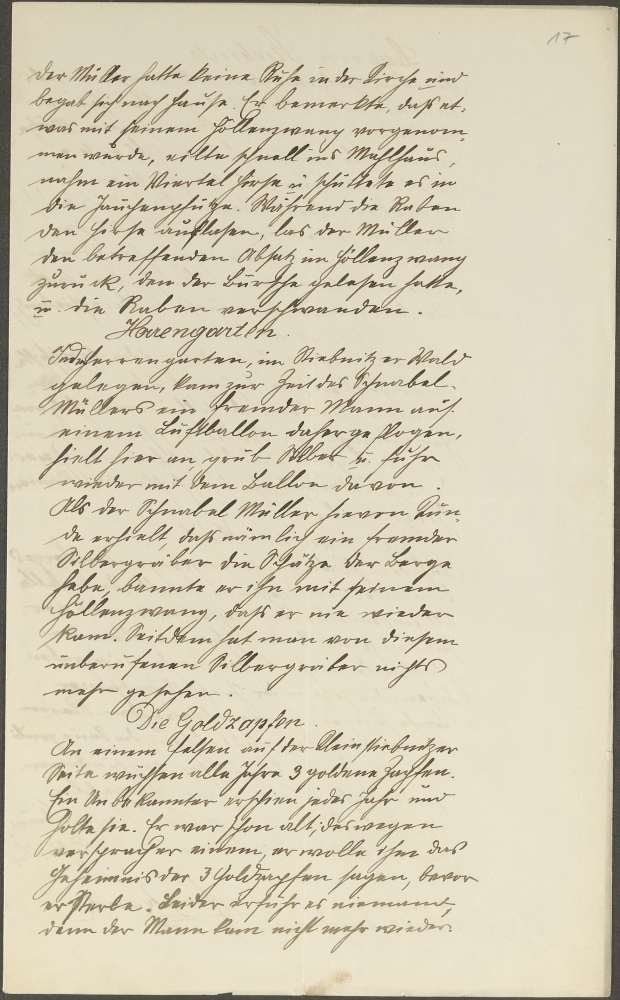 17
Der Müller hatte keine Ruhe in der Kirche und
begab sich nach Hause. Er bemerkte, daß et-
was mit seinem Höllenzwang vorgenom-
men wurde, eilte schnell ins Mahlhaus,
nahm ein Viertel Hirse u. schüttete es in
die Jauchenpfütze. Während die Raben
den Hirse auflasen, las der Müller
den betreffenden Absatz im Höllenzwang
zurück, den der Bursche gelesen hatte,
u. die Raben verschwanden.
Herrengarten.
Im Herrengarten, im Stiebnitzer Wald
gelegen, kam zur Zeit des Schnabel-
Müllers ein fremder Mann auf
einem Luftballon dahergeflogen,
hielt hier an, grub Silber u. fuhr
wieder mit dem Ballon davon.
Als der Schnabel Müller hievon Kun-
de erhielt, daß nämlich ein fremder
Silbergräber die Schätze der Berge
hebe, bannte er ihn mit seinem
Höllenzwang, daß er nie wieder
kam. Seitdem hat man von diesem
unberufenen Silbergräber nichts
mehr gesehen.
Die Goldzapfen.
An einem Felsen auf der Kleinstiebnitzer
Seite wuchsen alle Jahre 3 goldene Zapfen.
Ein Unbekannter erschien jedes Jahr und
holte sie. Er war schon alt; deswegen
versprach er einem, er wolle ihm das
Geheimnis der 3 Goldzapfen sagen, bevor
er sterbe. Leider erfuhr es niemand,
denn der Mann kam nicht mehr wieder.